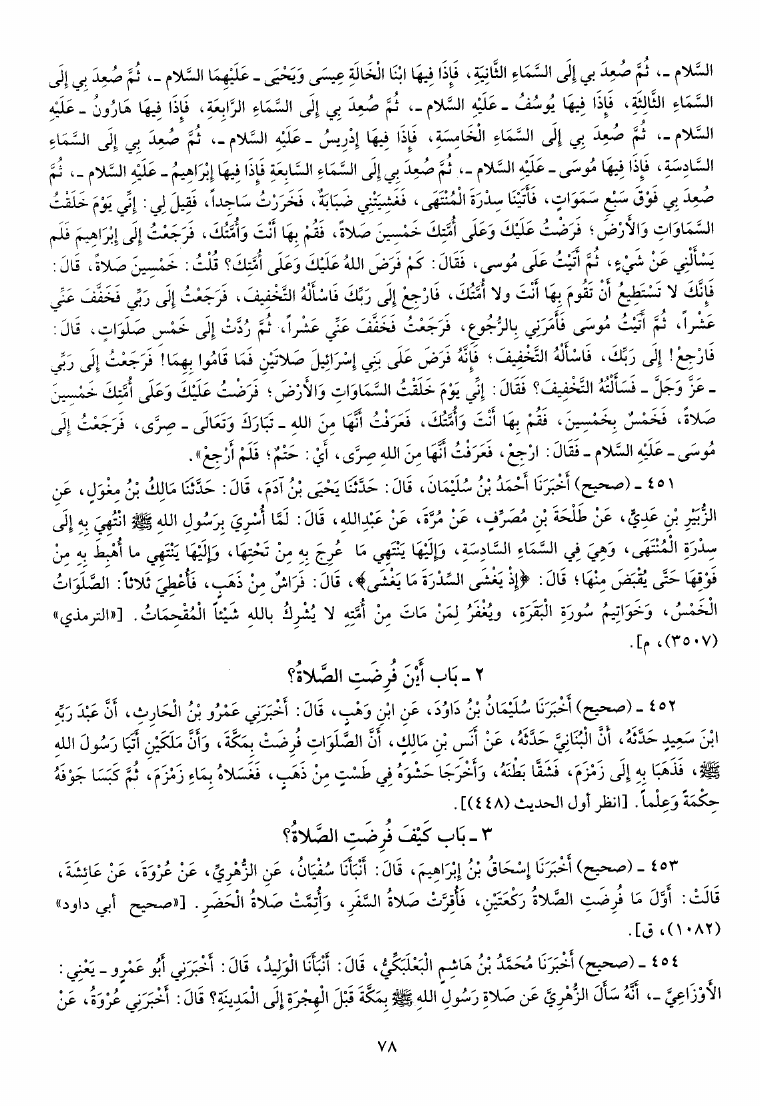 السَّلام ـ، ثُمَّ صُعِدَ بي إِلَى السَّمَاءِ الثَّانِيَةِ، فَإِذَا فِيهَا ابْنَا الْخَالَةِ عِيسَى وَيَحْيَى ـ عَلَيْهِمَا السَّلام ـ، ثُمَّ صُعِدَ بِي إِلَى
السَّمَاءِ الثَّالِثَةِ، فَإِذَا فِيهَا يُوسُفُ ـ عَلَيْهِ السَّلام ـ، ثُمَّ صُعِدَ بِي إِلَى السَّمَاءِ الرَّابِعَةِ، فَإِذَا فِيهَا هَارُونُ ـ عَلَيْهِ
السَّلام ـ، ثُمَّ صُعِدَ بِي إِلَى السَّمَاءِ الْخَامِسَةِ، فَإِذَا فِيهَا إِدْرِيسُ ـ عَلَيْهِ السَّلام ـ، ثُمَّ صُعِدَ بِي إِلَى السَّمَاءِ
السَّادِسَةِ، فَإِذَا فِيهَا مُوسَى ـ عَلَيْهِ السَّلام ـ، ثُمَّ صُعِدَ بِي إِلَى السَّمَاءِ السَّابِعَةِ فَإِذَا فِيهَا إِبْرَاهِيمُ ـ عَلَيْهِ السَّلام ـ، ثُمَّ
صُعِدَ بِي فَوْقَ سَبْعِ سَمَوَاتٍ، فَأَتَيْنَا سِدْرَةَ الْمُنْتَهَى، فَغَشِيَتْنِي ضَبَابَةٌ، فَخَرَرْتُ سَاجِداً، فَقِيلَ لِي: إِنِّي يَوْمَ خَلَقْتُ
السَّمَاوَاتِ وَالأَرْضَ؛ فَرَضْتُ عَلَيْكَ وَعَلَى أُمَّتِكَ خَمْسِينَ صَلاةً، فَقُمْ بِهَا أَنْتَ وَأُمَّتُكَ، فَرَجَعْتُ إِلَى إِبْرَاهِيمَ فَلَم
يَسْأَلْنِي عَنْ شَيْءٍ، ثُمَّ أَتَيْتُ عَلَى مُوسى، فَقَالَ: كَمْ فَرَضَ اللهُ عَلَيْكَ وَعَلَى أُمَّتِكَ؟ قُلْتُ: خَمْسِينَ صَلاةً، قَالَ:
فَإِنَّكَ لا تَسْتَطِيعُ أَنْ تَقُومَ بِهَا أَنْتَ ولا أُمَّتُكَ، فَارْجِعْ إِلَى رَبِّكَ فَاسْأَلْهُ التَّخْفِيفَ، فَرَجَعْتُ إِلَى رَبِّي فَخَفَّفَ عَنِّي
عَشْراً، ثُمَّ أَتَيْتُ مُوسَى فَأَمَرَنِي بِالرُّجُوعِ، فَرَجَعْتُ فَخَفَّفَ عَنِّي عَشْراً، ثُمَّ رُدَّتْ إِلَى خَمْسِ صَلَوَاتٍ، قَالَ:
فَارْجِعْ! إِلَى رَبِّكَ، فَاسْأَلْهُ التَّخْفِيفَ؛ فَإِنَّهُ فَرَضَ عَلَى بَنِي إِسْرَائِيلَ صَلاتَيْنِ فَمَا قَامُوا بِهِمَا! فَرَجَعْتُ إِلَى رَبِّي
ـ عَزَّ وَجَلَّ ـ فَسَأَلْتُهُ التَّخْفِيفَ؟ فَقَالَ: إِنِّي يَوْمَ خَلَقْتُ السَّمَاوَاتِ وَالأَرْضَ؛ فَرَضْتُ عَلَيْكَ وَعَلَى أُمَّتِكَ خَمْسِينَ
صَلاةً، فَخَمْسٌ بِخَمْسِينَ، فَقُمْ بِهَا أَنْتَ وَأُمَّتُكَ، فَعَرَفْتُ أَنَّهَا مِنَ اللهِ ـ تَبَارَكَ وَتَعَالَى ـ صِرَّى، فَرَجَعْتُ إِلَى
مُوسَى ـ عَلَيْهِ السَّلام ـ فَقَالَ: ارْجِعْ، فَعَرَفْتُ أَنَّهَا مِنَ اللهِ صِرَّى، أَيْ: حَتْمٌ؛ فَلَمْ أَرْجِعْ».
٤٥١ ـ (صحيح) أَخْبَرَنَا أَحْمَدُ بْنُ سُلَيْمَانَ، قَالَ: حَدَّثَنَا يَحْيَى بْنُ آدَمَ، قَالَ: حَدَّثَنَا مَالِكُ بْنُ مِغْوَلٍ، عَنِ
الزُّبَيْرِ بْنِ عَدِيٍّ، عَنْ طَلْحَةَ بْنِ مُصَرِّفٍ، عَنْ مُرَّةَ، عَنْ عَبْدِاللهِ، قَالَ: لَمَّا أُسْرِيَ بِرَسُولِ اللهِ ﷺ انْتُهِيَ بِهِ إِلَى
سِدْرَةِ الْمُنْتَهَى، وَهِيَ فِي السَّمَاءِ السَّادِسَةِ، وَإِلَيْهَا يَنْتَهِي مَا عُرِجَ بِهِ مِنْ تَحْتِهَا، وَإِلَيْهَا يَنْتَهِي ما أُهْبِطَ بِهِ مِنْ
فَوْقِهَا حَتَّى يُقْبَضَ مِنْهَا؛ قَالَ: ﴿إِذْ يَغْشَى السِّدْرَةَ مَا يَغْشَى﴾، قَالَ: فَرَاشٌ مِنْ ذَهَبٍ، فَأُعْطِيَ ثَلاثاً: الصَّلَوَاتُ
الْخَمْسُ، وَخَوَاتِيمُ سُورَةِ الْبَقَرَةِ، ويُغْفَرُ لِمَنْ مَاتَ مِنْ أُمَّتِهِ لا يُشْرِكُ باللهِ شَيْئاً الْمُقْحِمَاتُ. [«الترمذي»
(٣٥٠٧)، م].
٢ ـ بَاب أَيْنَ فُرِضَتِ الصَّلاةُ؟
٤٥٢ ـ (صحيح) أَخْبَرَنَا سُلَيْمَانُ بْنُ دَاوُدَ، عَنِ ابْنِ وَهْبٍ، قَالَ: أَخْبَرَنِي عَمْرُو بْنُ الْحَارِثِ، أَنَّ عَبْدَ رَبِّهِ
ابْنَ سَعِيدٍ حَدَّثَهُ، أَنَّ الْبُنَانِيَّ حَدَّثَهُ، عَنْ أَنَسِ بْنِ مَالِكٍ، أَنَّ الصَّلَوَاتِ فُرِضَتْ بِمَكَّةَ، وَأَنَّ مَلَكَيْنِ أَتَيَا رَسُولَ اللهِ
ﷺ، فَذَهَبَا بِهِ إِلَى زَمْزَمَ، فَشَقَّا بَطْنَهُ، وَأَخْرَجَا حَشْوَهُ فِي طَسْتٍ مِنْ ذَهَبٍ، فَغَسَلاهُ بِمَاءِ زَمْزَمَ، ثُمَّ كَبَسَا جَوْفَهُ
حِكْمَةً وَعِلْماً. [انظر أول الحديث (٤٤٨)].
٣ ـ بَاب كَيْفَ فُرِضَتِ الصَّلاةُ؟
٤٥٣ ـ (صحيح) أَخْبَرَنَا إِسْحَاقُ بْنُ إِبْرَاهِيمَ، قَالَ: أَنْبَأَنَا سُفْيَانُ، عَنِ الزُّهْرِيِّ، عَنْ عُرْوَةَ، عَنْ عَائِشَةَ،
قَالَتْ: أَوَّلَ مَا فُرِضَتِ الصَّلاةُ رَكْعَتَيْنِ، فَأُقِرَّتْ صَلاةُ السَّفَرِ، وَأُتِمَّتْ صَلاةُ الْحَضَرِ. [«صحيح أبي داود»
(١٠٨٢)، ق].
٤٥٤ ـ (صحيح) أَخْبَرَنَا مُحَمَّدُ بْنُ هَاشِمٍ الْبَعْلَبَكِّيُّ، قَالَ: أَنْبَأَنَا الْوَلِيدُ، قَالَ: أَخْبَرَنِي أَبُو عَمْرٍو ـ يَعْنِي:
الأَوْزَاعِيَّ ـ، أَنَّهُ سَأَلَ الزُّهْرِيَّ عَن صَلاةِ رَسُولِ اللهِ ﷺ بِمَكَّةَ قَبْلَ الْهِجْرَةِ إِلَى الْمَدِينَةِ؟ قَالَ: أَخْبَرَنِي عُرْوَةُ، عَنْ
٧٨